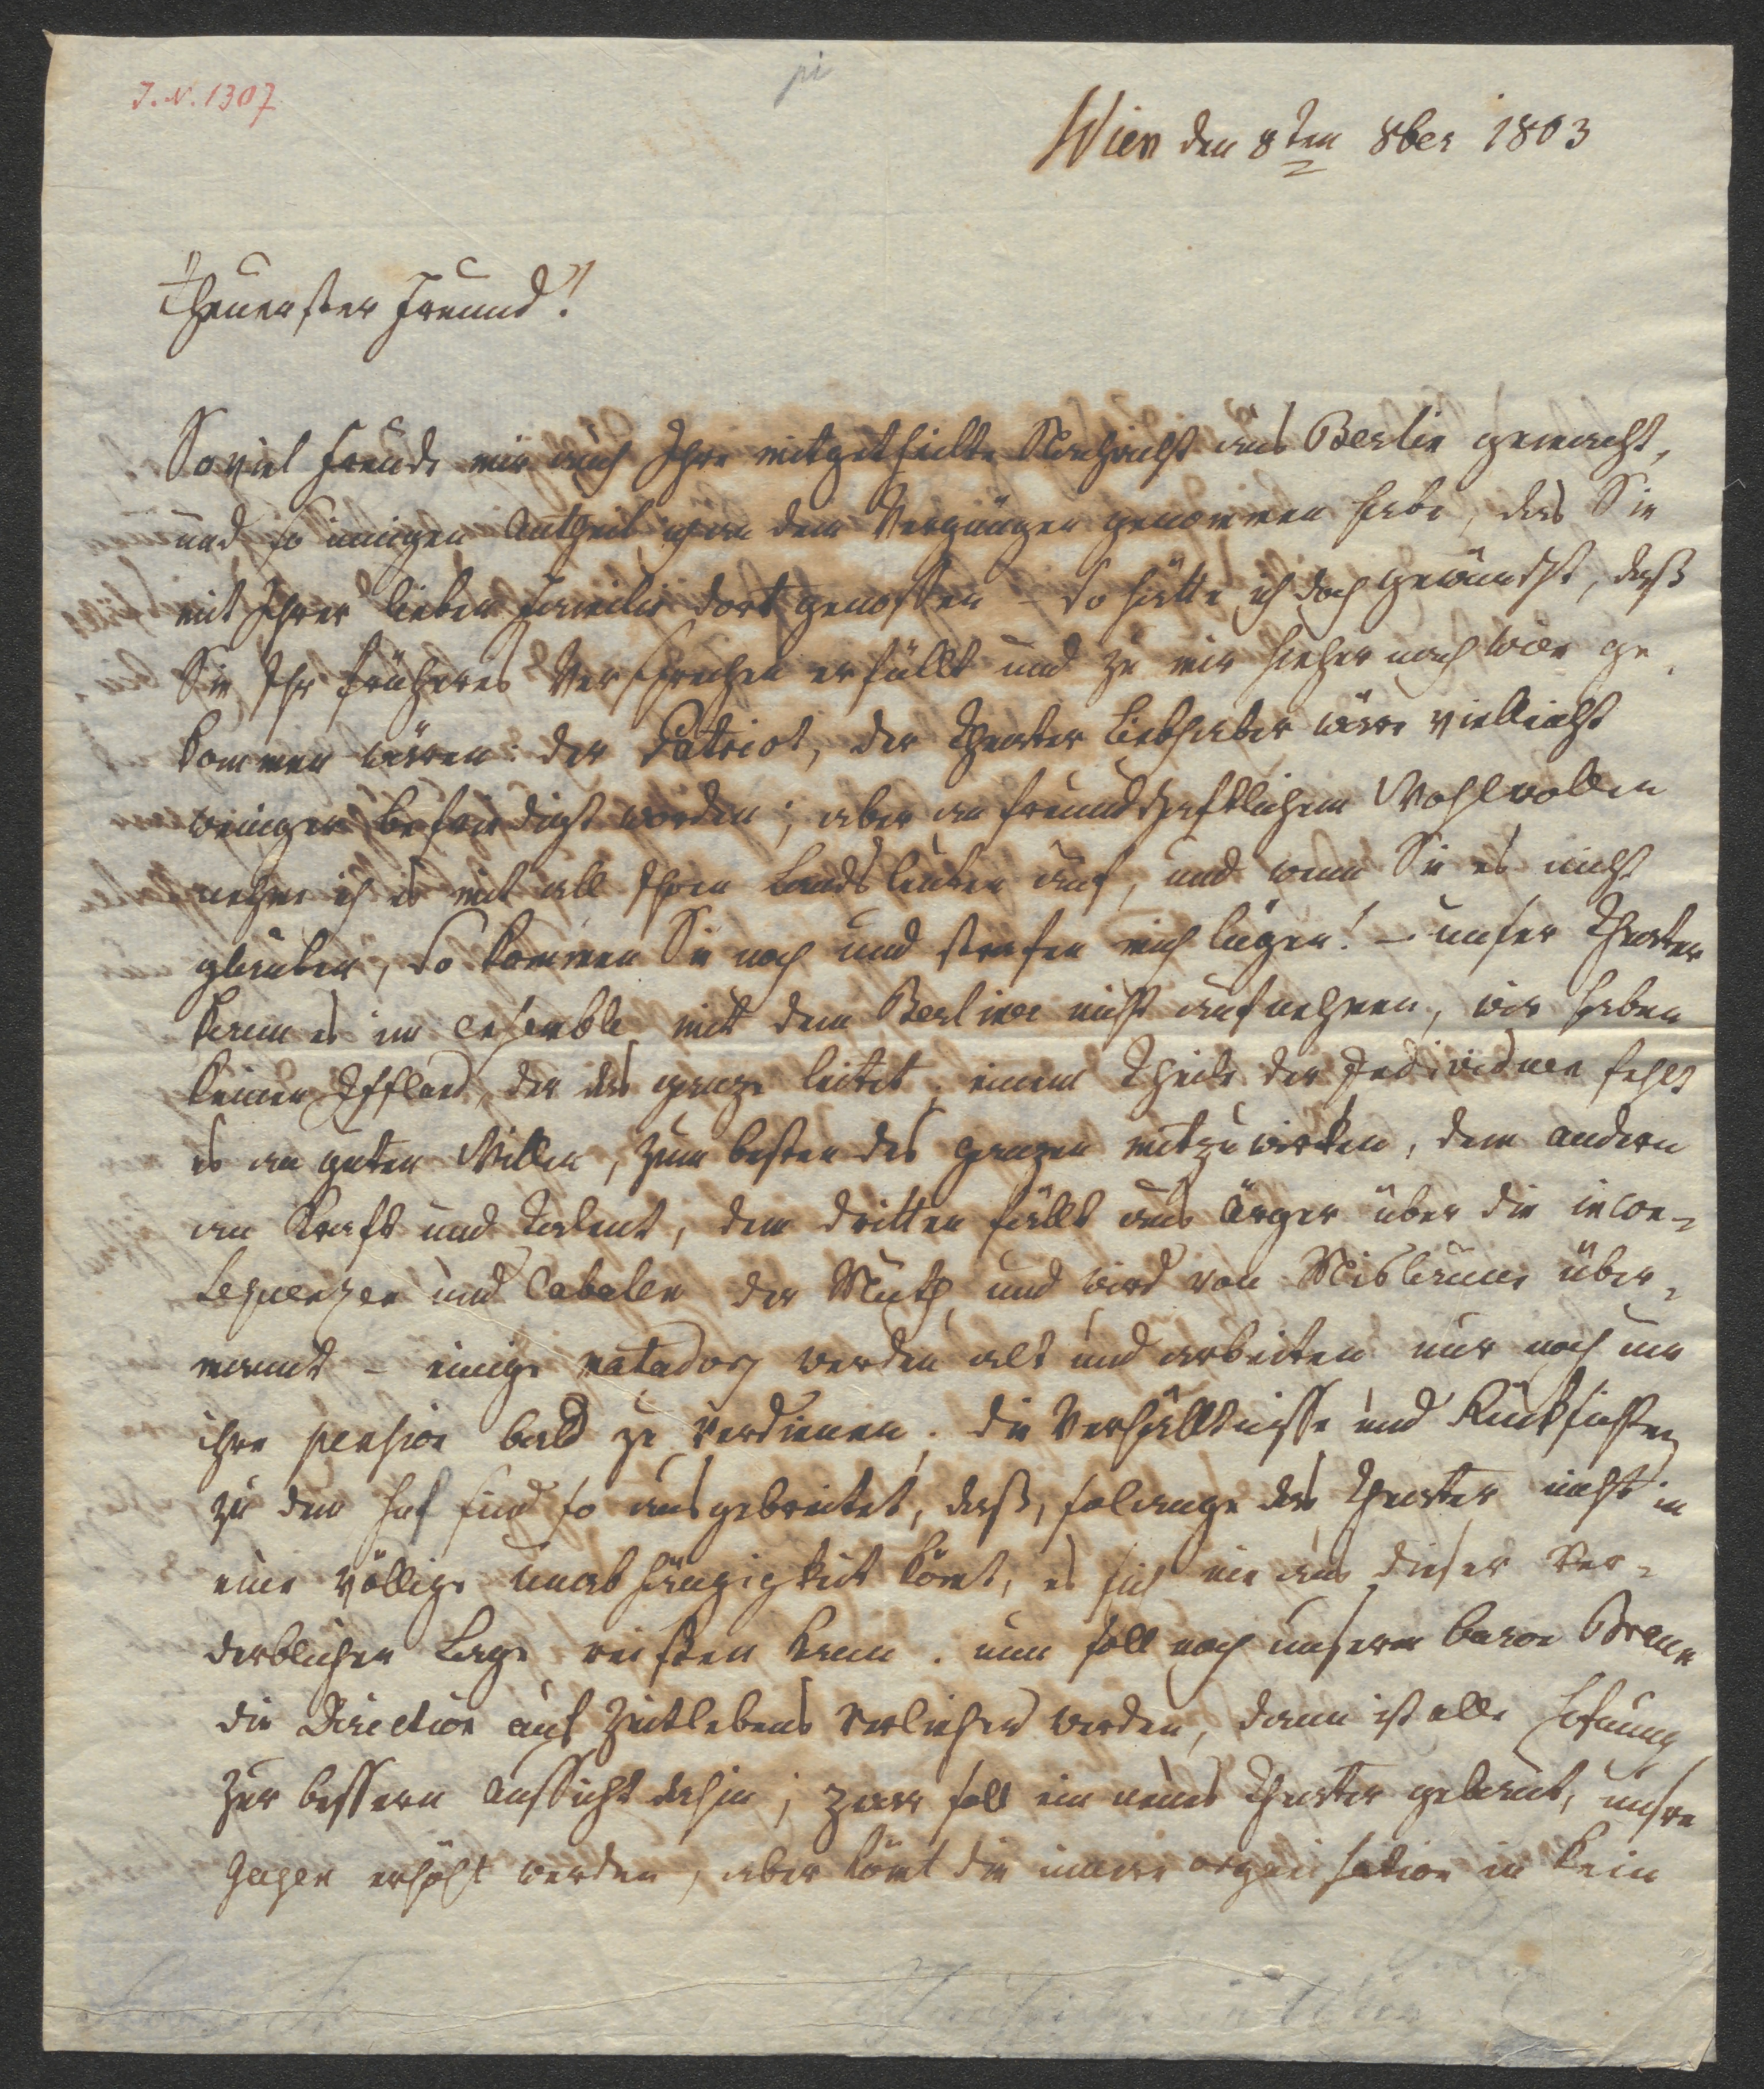 J. N. 1307
pi
Wien den 8ten 8ber 1803
Theuerster Freund!
So viel Freude mir auch Ihre mitgetheilte Nachricht aus Berlin gemacht,
und so innigen Antheil ich an dem Vergnügen genommen habe, das Sie
mit Ihrer lieben Familie dort genossen – so hätte ich doch gewünscht, daß
Sie Ihr früheres Versprechen erfüllt und zu mir hieher nach Wien ge-
kommen wären. der Patriot, der Theater Liebhaber wäre vielleicht
weniger befriedigt worden; aber an freundschaftlichem Wohlwollen
nehme ich es mit all Ihren Landsleuten auf, und wenn Sie es nicht
glauben, so kommen Sie noch und strafen mich lügen! – unser Theater
kann es im ensemble mit dem Berliner nicht aufnehmen, wir haben
keinen Iffland, der das ganze leitet. einem Theile der Individuen fehlt
es an guten Willen, zum besten des ganzen mitzuwirken, dem andern
an Kraft und Talent, dem dritten fällt aus Ärger über die incon-
sequenzen und Cabalen der Muth und wird von Mislaune über-
mannt – einige matadors werden alt und arbeiten nur noch um
ihre pension bald zu verdienen. die Verhälltnisse und Rücksichten
zu den Hof sind so ausgebreitet, daß, solange das Theater nicht in
eine völlige unabhängigkeit kömt, es sich nie aus dieser ver-
derblichen Lage reißen kann. nun soll noch unserm baron Braun
die Direction auf Zeitlebens verliehen werden, dann ist alle Hofnung
zur bessern Aussicht dahin; zwar soll ein neues Theater gebaut, unsre
Gagen erhöht werden, aber kömt die innere organisation in kein